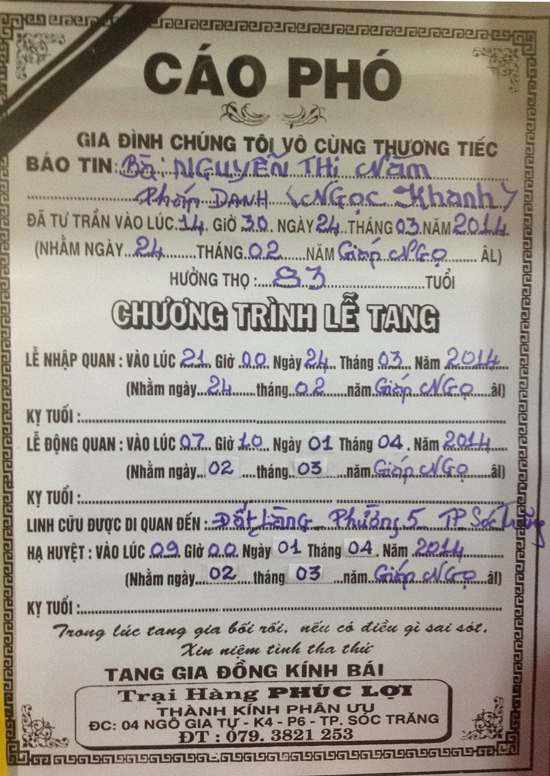 CÁO PHÓ
GIA ĐÌNH CHÚNG TÔI VÔ CÙNG THƯƠNG TIẾC
BÁO TIN: Bà: NGUYỄN THỊ Năm
Pháp DANH (NGỌC Khanh)
ĐÃ TỪ TRẦN VÀO LÚC 14 GIỜ 30 NGÀY 24 THÁNG 03 NĂM 2014
(NHẰM NGÀY 24 THÁNG 02 NĂM Giáp NGọ ÂL)
HƯỞNG THỌ : 83 TUỔI
CHƯƠNG TRÌNH LỄ TANG
LỄ NHẬP QUAN : VÀO LÚC 21 Giờ 00 Ngày 24 Tháng 03 Năm 2014
(Nhằm ngày 24 tháng 02 năm Giáp NGọ âl)
KỴ TUỔI :
LỄ ĐỘNG QUAN : VÀO LÚC 07 Giờ 10 Ngày 01 Tháng 04 . Năm 2014
(Nhằm ngày 02 tháng 03 năm Giáp NGọ âl)
KỴ TUỔI :
LINH CỮU ĐƯỢC DI QUAN ĐẾN : Đất Làng Phường 5 TP Sóc Trăng
HẠ HUYỆT : VÀO LÚC 09 Giờ 00 Ngày 01 Tháng 04. Năm 2014
(Nhằm ngày 02 tháng 03 năm Giáp NGọ âl)
KỴ TUỔI :
Trong lúc tang gia bối rối, nếu có điều gì sai sót,
Xin niệm tình tha thứ
TANG GIA ĐỒNG KÍNH BÁI
Trại Hàng PHÚC LỢI
THÀNH KÍNH PHÂN ƯU
ĐC: 04 NGÔ GIA TỰ - K4 - P6 - TP. SÓC TRĂNG
ĐT : 079. 3821 253